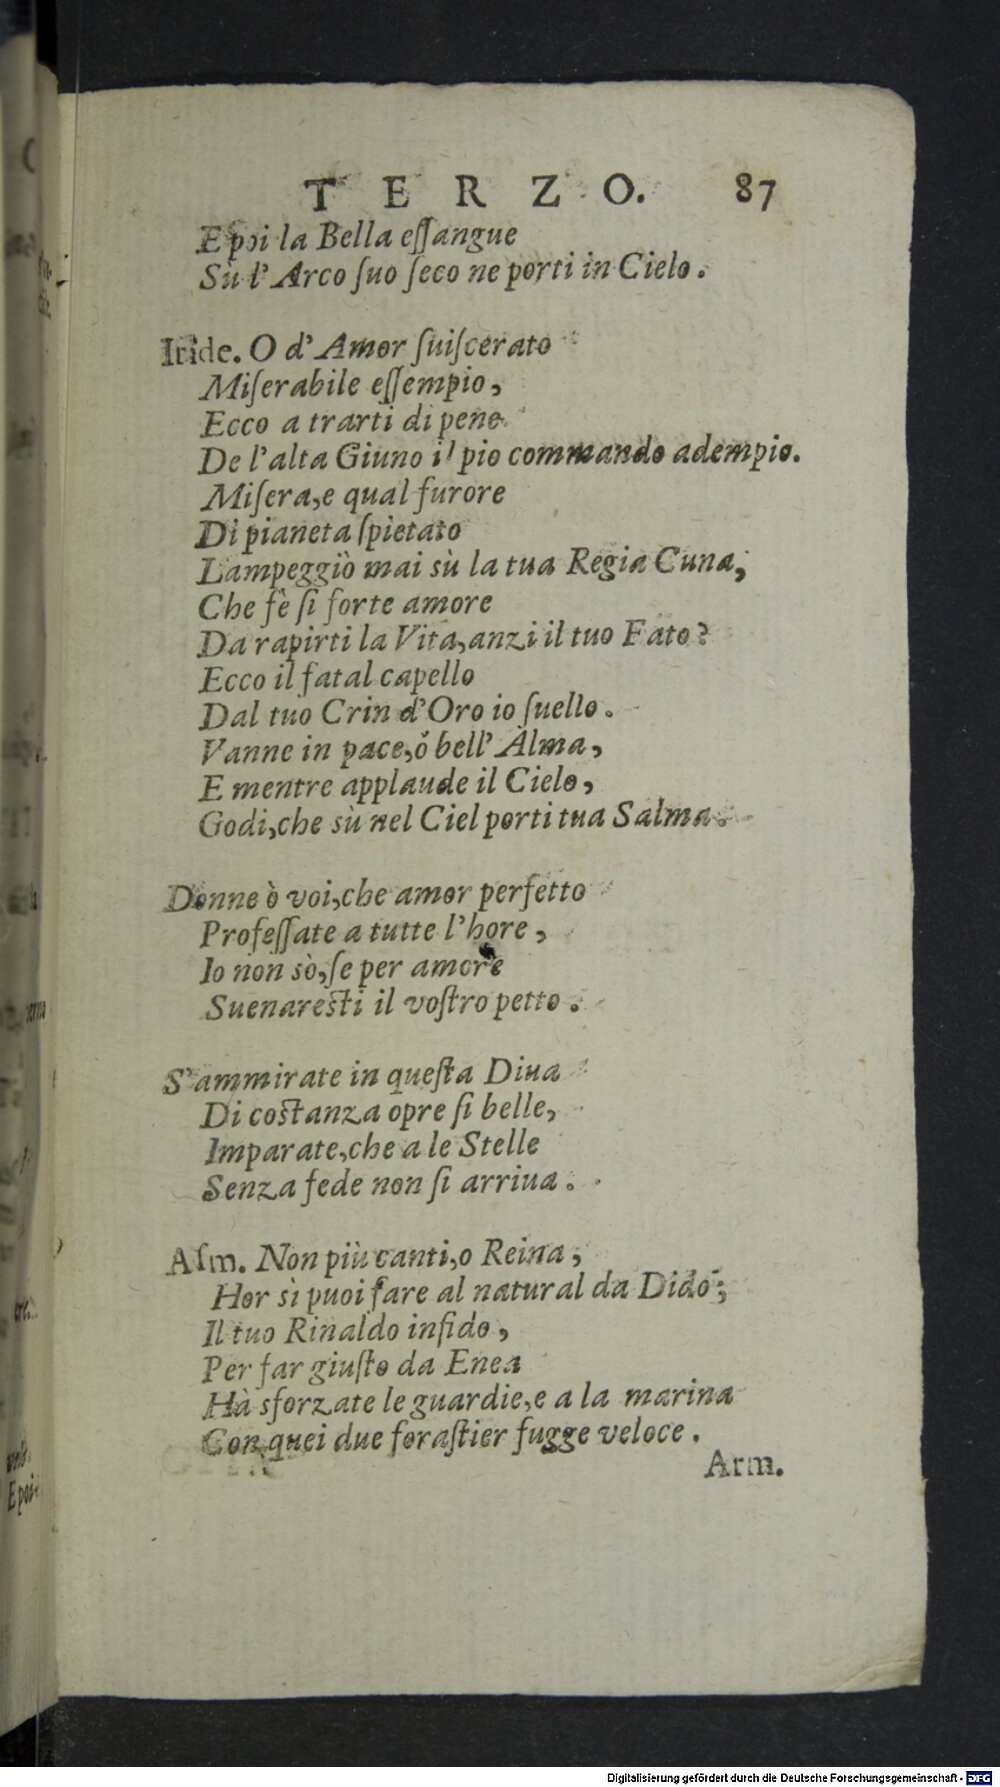 TERZO. 87
E poi la Bella eſſangue
Sù l'Arco ſuo ſeco ne porti in Cielo.
Iride. O d'Amor ſuiſcerato
Miſerabile eſſempio,
Ecco a trarti di pene
De l'alta Giuno il pio commando adempio.
Miſera, e qual furore
Di pianeta ſpietato
Lampeggiò mai sù la tua Regia Cuna,
Che fè ſi forte amore
Da rapirti la Vita, anzi il tuo Fato?
Ecco il fatal capello
Dal tuo Crin d'Oro io ſuello.
Vanne in pace, ò bell'Alma,
E mentre applaude il Cielo,
Godi, che sù nel Ciel porti tua Salma.
Donne ò voi, che amor perfetto
Profeſſate a tutte l'hore,
Io non sò, ſe per amore
Suenareſti il voſtro petto.
S'ammirate in queſta Diua
Di coſtanza opre ſi belle,
Imparate, che a le Stelle
Senza fede non ſi arriua.
Aſm. Non più canti, o Reina,
Hor sì puoi fare al natural da Dido;
Il tuo Rinaldo infido,
Per far giuſto da Enea
Hà sforzate le guardie, e a la marina
Con quei due foraſtier fugge veloce.
Arm.
Digitalisierung gefördert durch die Deutsche Forschungsgemeinschaft - DFG